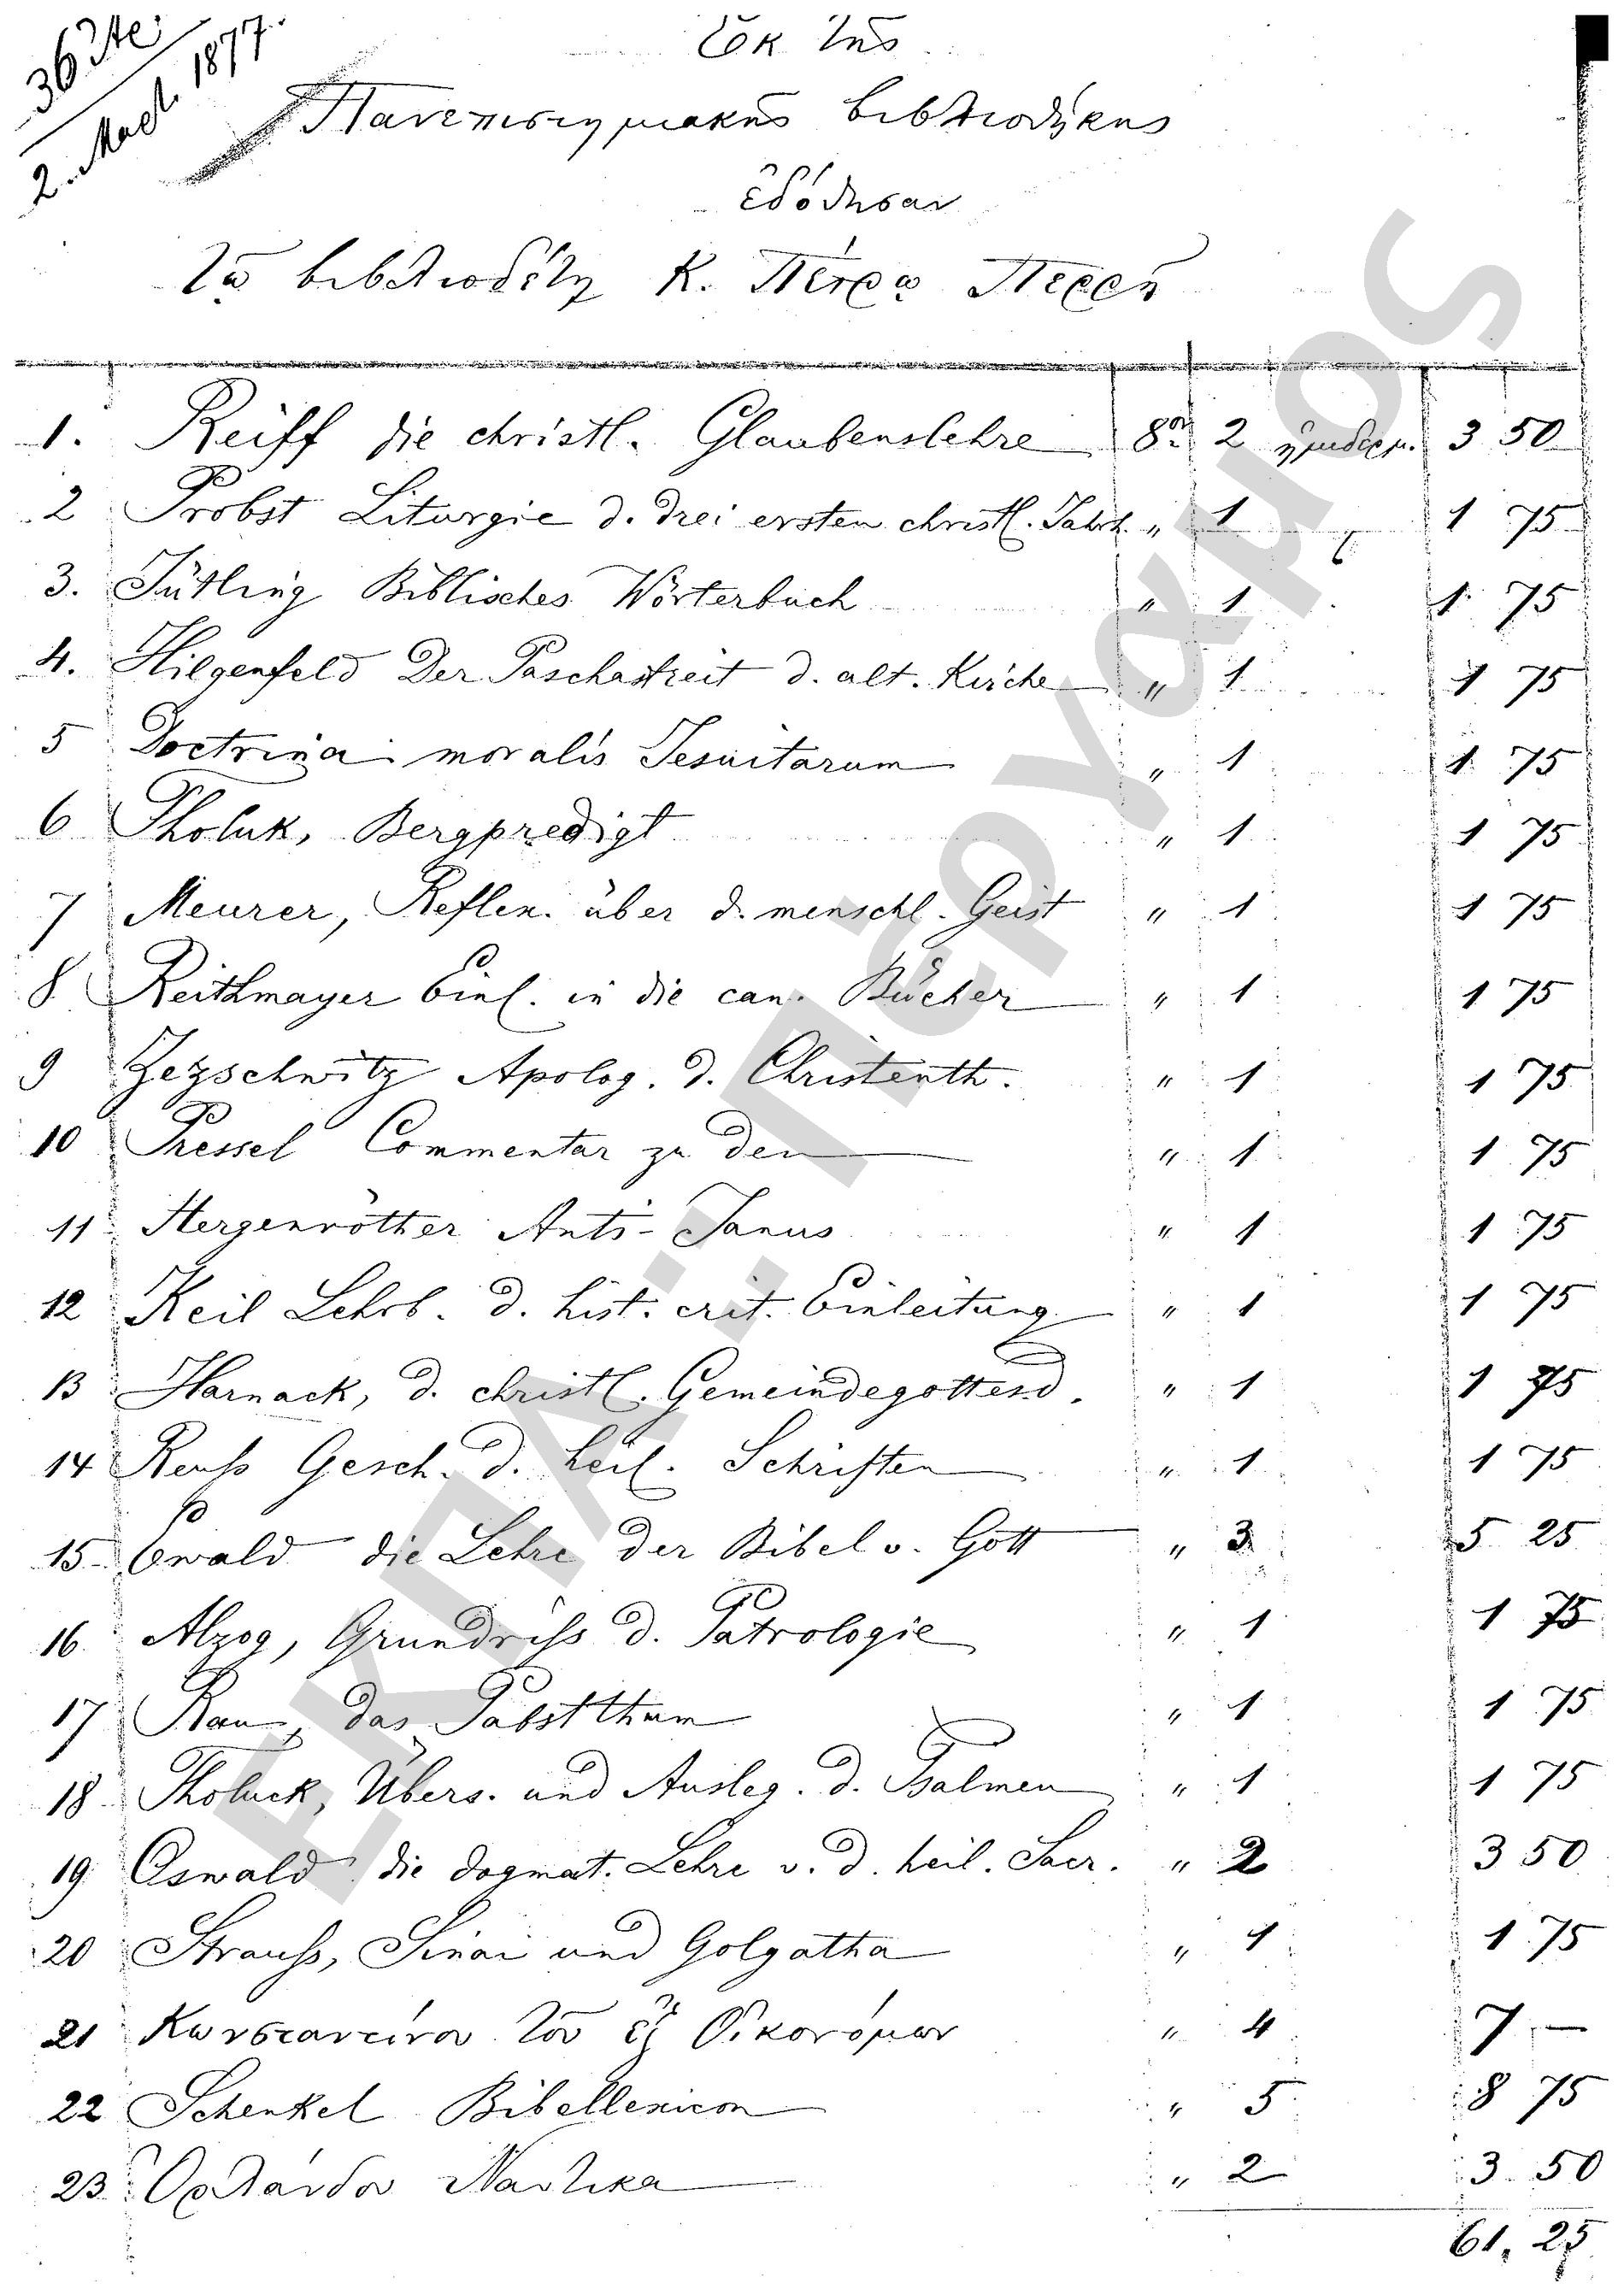 36 Στε
2. Μαϊ. 1877.
Ἐκ τῆς
Πανεπιστημιακῆς βιβλιοθήκης
ἐδόθησαν
τῷ βιβλιοδέτῃ Κ. Πέτρῳ
1. Reiff die christl. Glaubenslehre 8ον 2 ἡμιδερμ. 3 50
2 Probst Liturgie d. drei ersten christl. Jahrh. " 1 1 75
3. Jütling Biblisches Wörterbuch " 1 1 75
4. Hilgenfeld Der Paschastreit d. alt. Kirche " 1 1 75
5 Doctrina moralis Jesuitarum " 1 1 75
6 Tholuk, Bergpredigt " 1 1 75
7 Meurer, Reflex. über d. menschl. Geist " 1 1 75
8 Reithmayer Einl. in die can. Bücher " 1 1 75
9 Zezschwitz Apolog. d. Christenth. " 1 1 75
10 Pressel Commentar zu den " 1 1 75
11 Hergenröther Anti-Janus " 1 1 75
12 Keil Lehrb. d. hist. crit. Einleitung " 1 1 75
13 Harnack, d. christl. Gemeindegottesd. " 1 1 75
14 Reuss Gesch. d. heil. Schriften " 1 1 75
15 Ewald die Lehre der Bibel v. Gott " 3 5 25
16 Alzog, Grundriss d. Patrologie " 1 1 75
17 Rau, das Pabstthum " 1 1 75
18 Tholuck, Übers. und Ausleg. d. Psalmen " 1 1 75
19 Oswald die dogmat. Lehre v. d. heil. Sacr. " 2 3 50
20 Strauss, Sinai und Golgatha " 1 1 75
21 Κωνσταντίνου τοῦ ἐξ Οἰκονόμων " 4 7 –
22 Schenkel Bibellexicon " 5 8 75
23 Ὀρλάνδου Ναυτικα " 2 3. 50
61, 25
ΕΚΠΑ: Πέργαμος